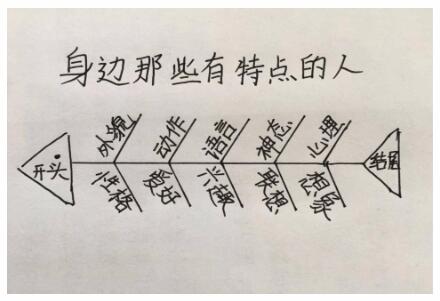 身边那些有特点的人
外貌 动作 语言 神态 心理
开头 结尾
性格 爱好 兴趣 联想 想象